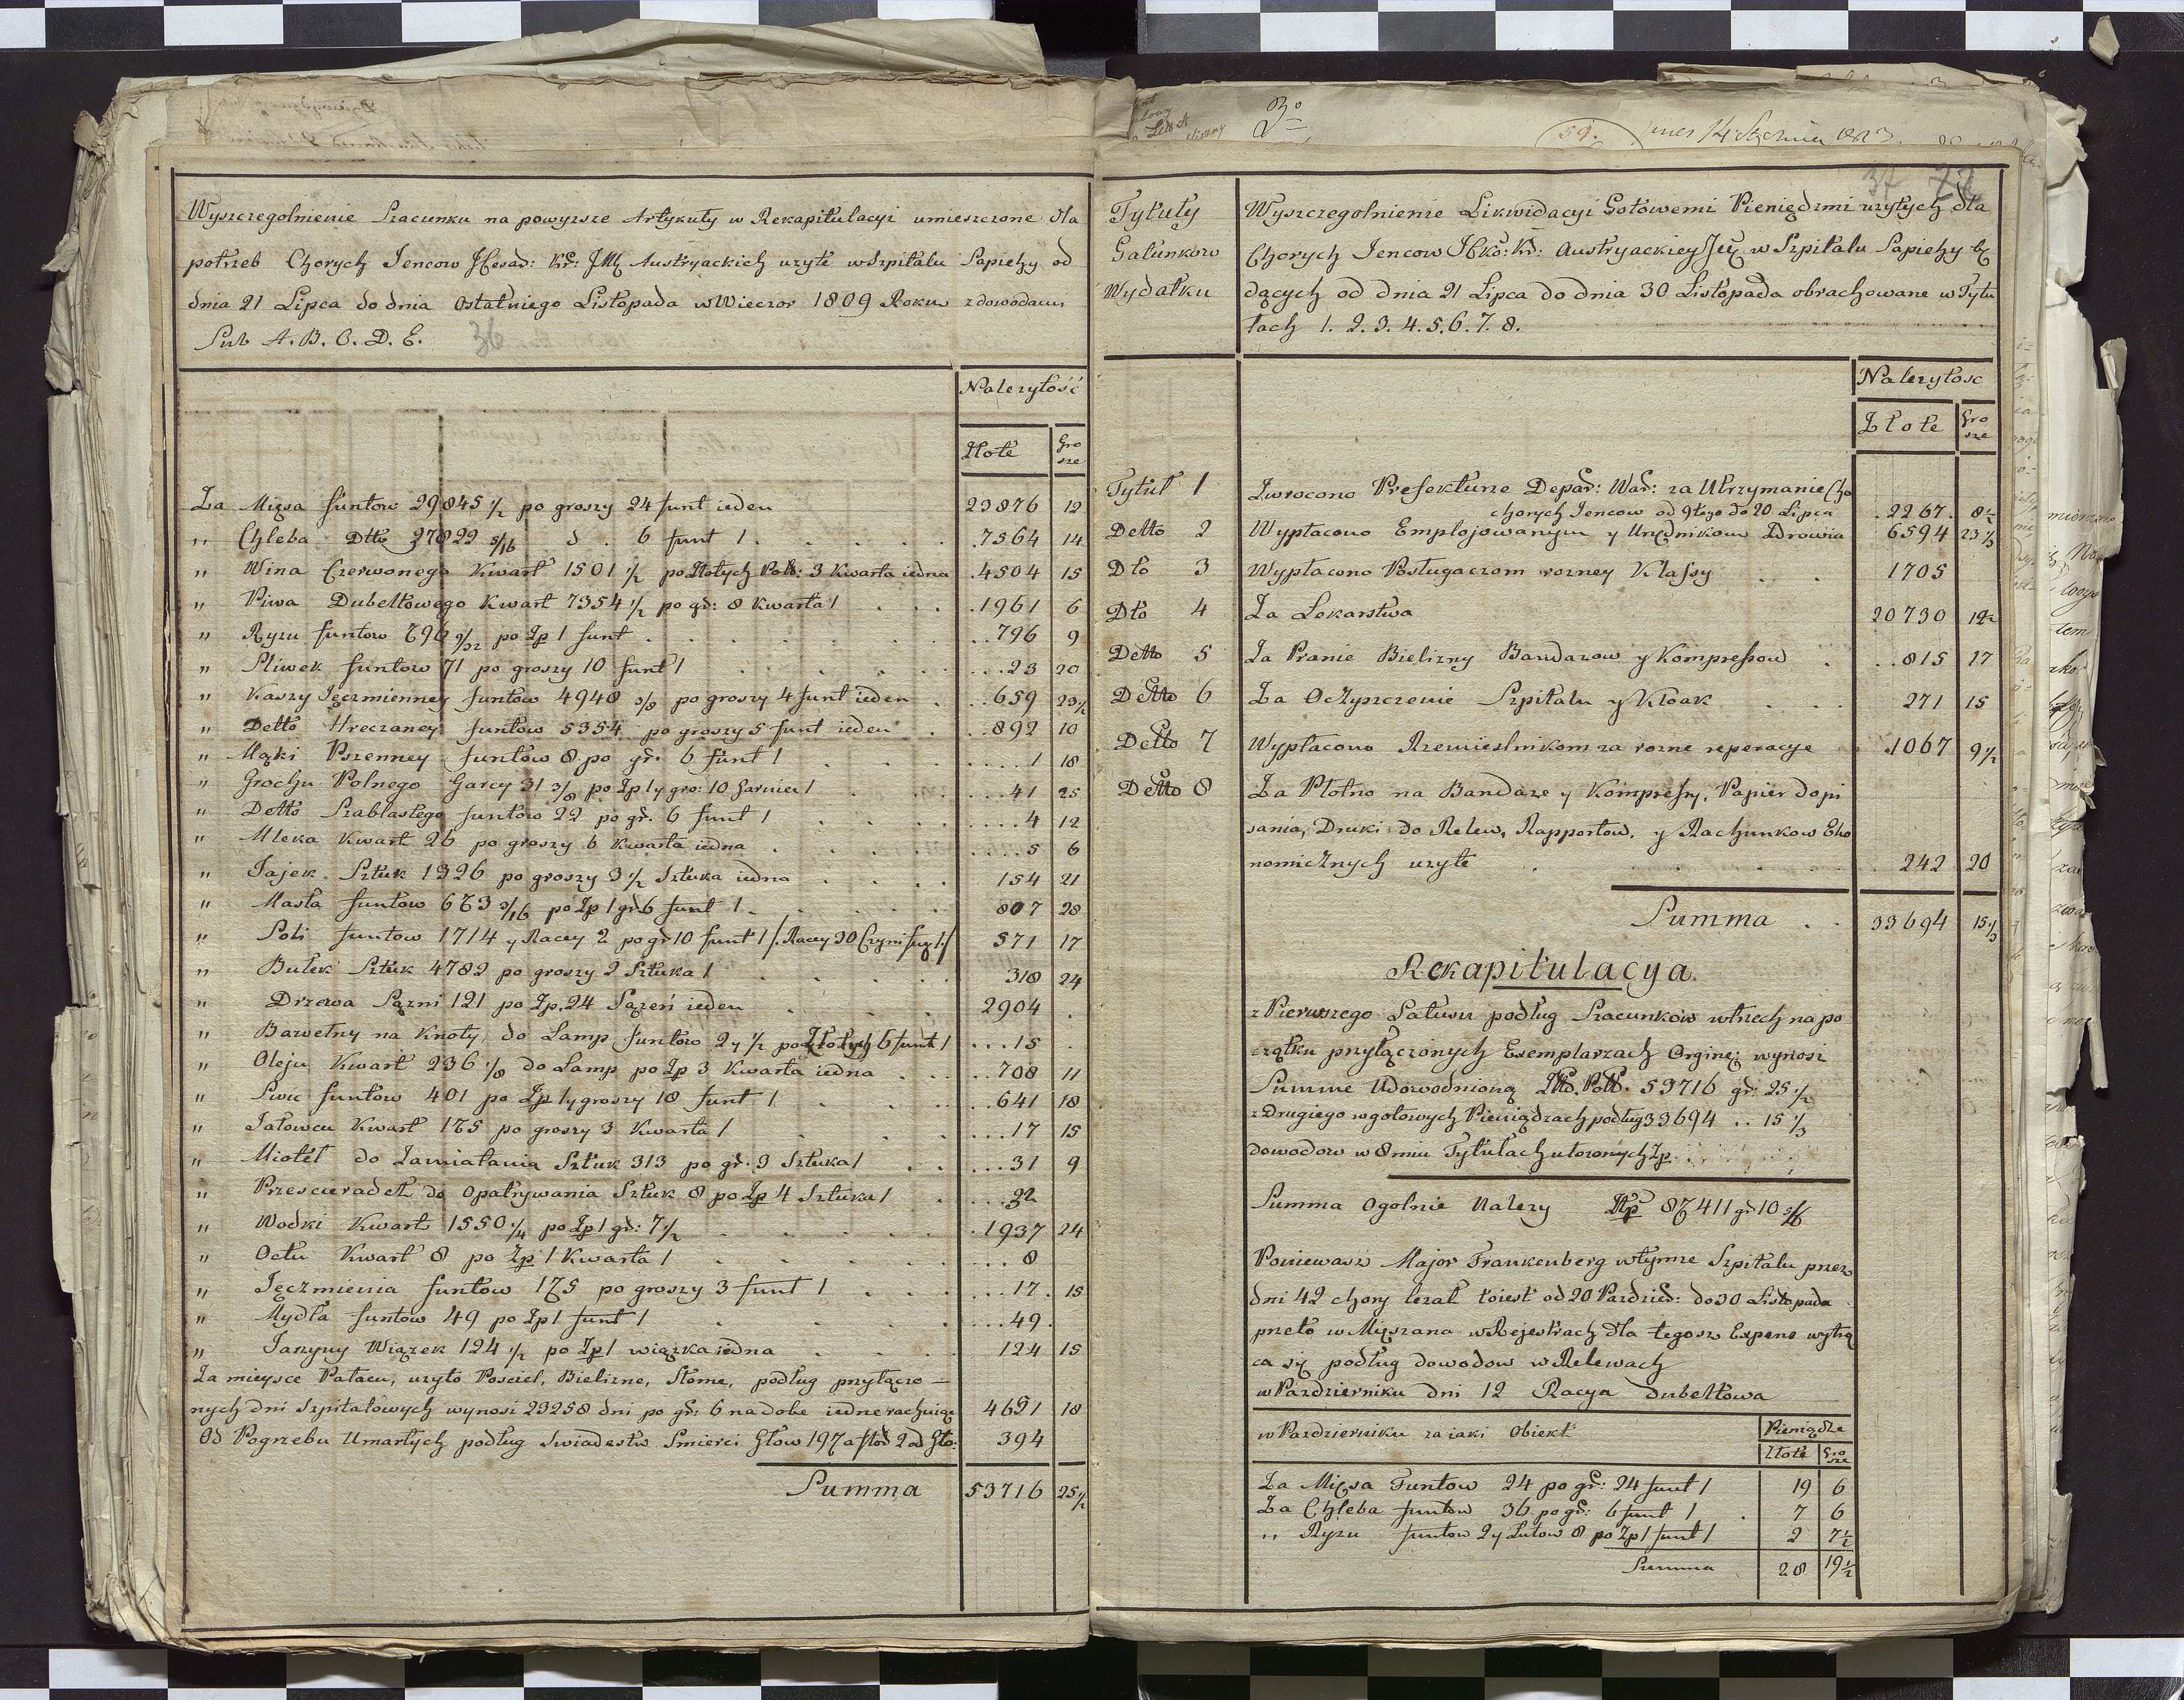 Wyszczegolnienie Szacunku na powyzsze Artykuły w Rekapitulacyi umieszczone dla
potrzeb Chorych Jencow JCesar: Kr: JMCi Austryackich uzyte w Szpitalu Sapiehy od
dnia 21 Lipca do dnia Ostatniego Listopada w Wieczor 1809 Roku z dowodami
Sub A. B. C. D. E.
36
Nalezytość
Złote Gro sze
Za Mięsa funtow 29845 1/2 po groszy 24 funt ieden 23876 12
" Chleba Dtto 27822 5/16 d . 6 funt 1 . 7564 14
" Wina Czerwonego Kwart 1501 1/2 po Złotych Pols: 3 Kwarta iedna 4504 15
" Piwa Dubeltowego Kwart 7354 1/2 po gr: 8 Kwarta 1 1961 6
" Ryzu funtow 796 9/32 po Zp 1 funt 796 9
" Sliwek funtow 71 po groszy 10 funt 1 23 20
" Kaszy Jęczmienney funtow 4948 3/8 po groszy 4 funt ieden 659 23 1/2
" Detto Hreczaney funtow 5354 po groszy 5 funt ieden 892 10
" Mąki Pszenney funtow 8 po gr. 6 funt 1 1 18
" Grochu Polnego Garcy 31 3/8 po Zp 1 y gro: 10 Garniec 1 41 25
" Detto Szablastego funtow 22 po gr. 6 funt 1 4 12
" Mleka Kwart 26 po groszy 6 Kwarta iedna 5 6
" Jajek Sztuk 1326 po groszy 3 1/2 Sztuka iedna 154 21
" Masła funtow 673 3/16 po Zp 1 gr 6 funt 1 807 28
" Soli funtow 1714 y Racey 2 po gr 10 funt 1 /. Racey 30 Czyni fun 1 ./ 571 17
" Bułek Sztuk 4782 po groszy 2 Sztuka 1 318 24
" Drzewa Sązni 121 po Zp. 24 Sązeń ieden 2904 .
" Bawełny na Knoty do Lamp funtow 2 y 1/2 po Złotych 6 funt 1 15 .
" Oleju Kwart 236 1/8 do Lamp po Zp 3 Kwarta iedna 708 11
" Swic funtow 401 po Zp 1 y groszy 18 funt 1 641 18
" Jałowcu Kwart 175 po groszy 3 Kwarta 1 17 15
" Mioteł do Zamiatania Sztuk 313 po gr. 3 Sztuka 1 31 9
" Przescieradeł do Opatrywania Sztuk 8 po Zp 4 Sztuka 1 32
" Wodki Kwart 1550 1/4 po Zp 1 gr: 7 1/2 1937 24
" Octu Kwart 8 po Zp 1 Kwarta 1 8
" Jęczmienia funtow 175 po groszy 3 funt 1 17 15
" Mydła funtow 49 po Zp 1 funt 1 49
" Jarzyny Wiązek 124 1/2 po Zp 1 wiązka iedna 124 15
Za mieysce Pałacu, uzyto Posciel, Bielizne, Słome, podług przyłączo-
nych dni Szpitalowych wynosi 23258 dni po gr: 6 na dobe iedne rachuiąc 4651 18
Od Pogrzebu Umarłych podług Swiadestw Smierci Głow 197 a 2 od Gło: 394
Summa 53716 25 1/2
3o
59.
14 Stycznia 1823
37
Tytuły
Gatunkow
Wydatku
Wyszczegolnienie Likwidacyi Gotowemi Pieniędzmi uzytych dla
Chorych Jencow JCko: Kr: Austryackiey w Szpitalu Sapiehy bę
dących od dnia 21 Lipca do dnia 30 Listopada obrachowane w Tytu
łach 1. 2. 3. 4. 5. 6. 7. 8.
Nalezytosc
Złote Gro sze
Tytuł 1 Zwrocono Prefekturze Depar: War: za Utrzymanie Cho
chorych Jencow od 9tego do 20 Lipca 2267. 8 1/2
Detto 2 Wypłacono Emplojowanym y Urzędnikom Zdrowia 6594 23 1/3
Dto 3 Wypłacono Posługaczom rozney Klassy 1705
Dto 4 Za Lekarstwa 20730 12
Detto 5 Za Pranie Bielizny Bandazow y Kompressow 815 17
Detto 6 Za Oczyszczenie Szpitalu y Kloak 271 15
Detto 7 Wypłacono Rzemieslnikom za rozne reperacye 1067 9 1/2
Detto 8 Za Płotno na Bandaze y Kompressy, Papier do pi
sania, Druki do Relew, Rapportow, y Rachunkow Eko
nomicznych uzyte 242 20
Summa 33694 15 1/3
Rekapitulacya.
z Pierwszego Satuwu podług Szacunkow w trzech na po
czątku przyłączonych Exemplarzach Orgine: wynosi
Summe Udowodnioną Złto. Pols. 53716 gr: 25 1/2
z Drugiego w gotowych Pieniądzach podług 33694 .. 15 1/3
dowodow w 8miu Tytułach utozonych Zp
Summa Ogolnie Nalezy Złp 87411 gr 10 5/6
Poniewasz Major Frankenberg w tymze Szpitalu przez
dni 42 chory lezał toiest od 20 Pazdzier: do 30 Listopada
przeto w Mięszana w Rejestrach dla tegosz Expens wytrą
ca się podług dowodow w Relewach
w Pazdzierniku dni 12 Racya dubeltowa
w Pazdzierniku za iaki Obiekt Pieniądze
Złote Gro sze
Za Mięsa Funtow 24 po gr: 24 funt 1 19 6
Za Chleba funtow 36 po gr: 6 funt 1 7 6
" Ryzu funtow 2 y Łutow 8 po Zp 1 funt 1 2 7 1/2
Summa 28 19 1/2